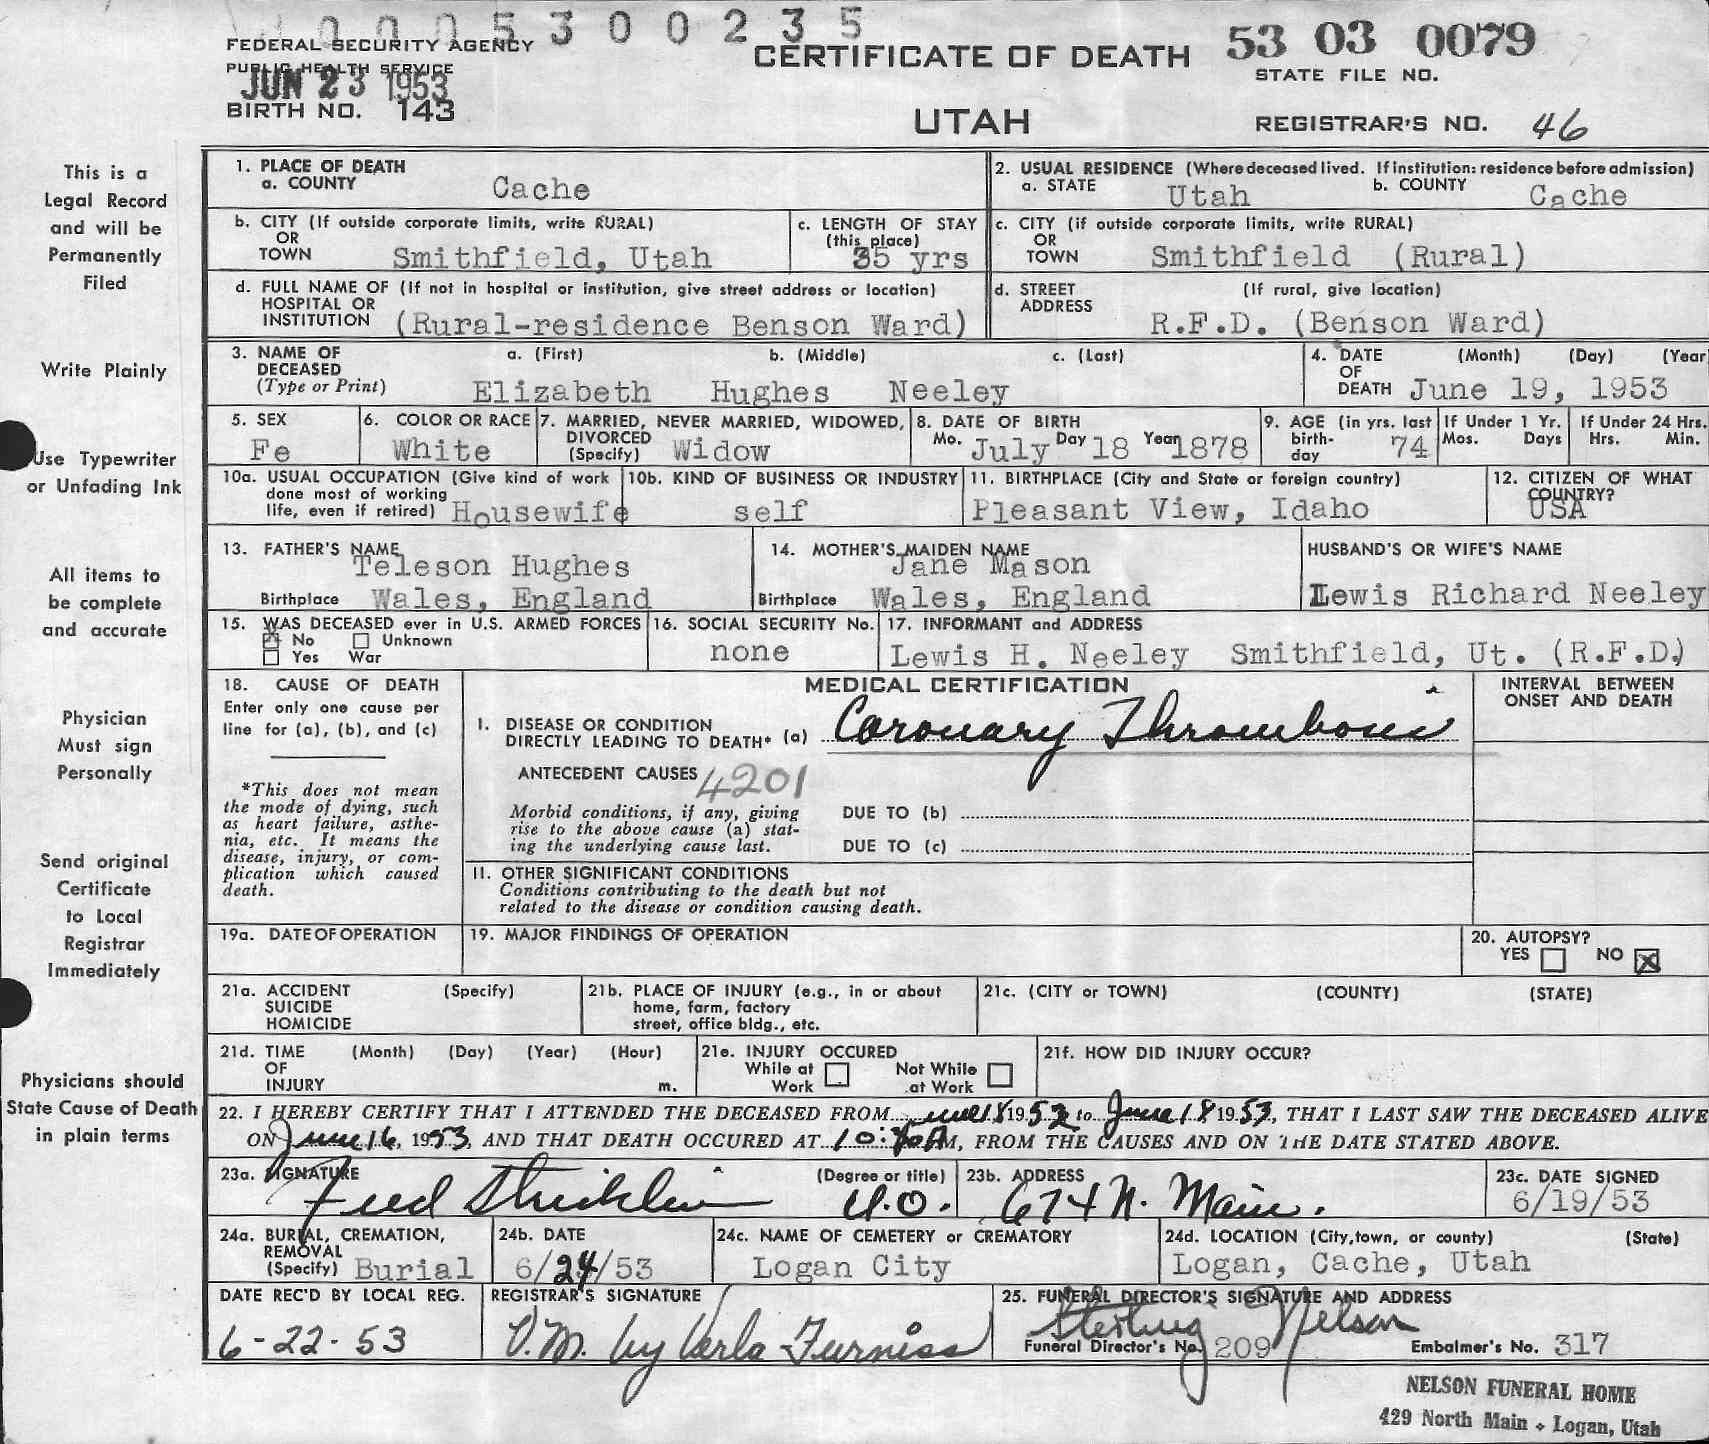 0005300235
FEDERAL SECURITY AGENCY
PUBLIC HEALTH SERVICE
JUN 23 1953
BIRTH NO. 143
CERTIFICATE OF DEATH
UTAH
53 03 0079
STATE FILE NO.
REGISTRAR'S NO. 46
This is a
Legal Record
and will be
Permanently
Filed
Write Plainly
Use Typewriter
or Unfading Ink
All items to
be complete
and accurate
Physician
Must sign
Personally
Send original
Certificate
to Local
Registrar
Immediately
Physicians should
State Cause of Death
in plain terms
1. PLACE OF DEATH
a. COUNTY Cache
2. USUAL RESIDENCE (Where deceased lived. If institution: residence before admission)
a. STATE Utah b. COUNTY Cache
b. CITY (If outside corporate limits, write RURAL)
OR
TOWN Smithfield, Utah
c. LENGTH OF STAY
(this place)
35 yrs
c. CITY (if outside corporate limits, write RURAL)
OR
TOWN Smithfield (Rural)
d. FULL NAME OF (If not in hospital or institution, give street address or location)
HOSPITAL OR
INSTITUTION (Rural-residence Benson Ward)
d. STREET (If rural, give location)
ADDRESS
R.F.D. (Benson Ward)
3. NAME OF a. (First) b. (Middle) c. (Last)
DECEASED
(Type or Print) Elizabeth Hughes Neeley
4. DATE (Month) (Day) (Year
OF
DEATH June 19, 1953
5. SEX
Fe
6. COLOR OR RACE
White
7. MARRIED, NEVER MARRIED, WIDOWED,
DIVORCED
(Specify) Widow
8. DATE OF BIRTH
Mo. July Day 18 Year 1878
9. AGE (in yrs. last
birth-
day 74
If Under 1 Yr.
Mos. Days
If Under 24 Hrs.
Hrs. Min.
10a. USUAL OCCUPATION (Give kind of work
done most of working
life, even if retired) Housewife
10b. KIND OF BUSINESS OR INDUSTRY
self
11. BIRTHPLACE (City and State or foreign country)
Pleasant View, Idaho
12. CITIZEN OF WHAT
COUNTRY?
USA
13. FATHER'S NAME
Teleson Hughes
Birthplace Wales, England
14. MOTHER'S MAIDEN NAME
Jane Mason
Birthplace Wales, England
HUSBAND'S OR WIFE'S NAME
Lewis Richard Neeley
15. WAS DECEASED ever in U.S. ARMED FORCES
No Unknown
Yes War
16. SOCIAL SECURITY No.
none
17. INFORMANT and ADDRESS
Lewis H. Neeley Smithfield, Ut. (R.F.D.)
18. CAUSE OF DEATH
Enter only one cause per
line for (a), (b), and (c)
*This does not mean
the mode of dying, such
as heart failure, asthe-
nia, etc. It means the
disease, injury, or com-
plication which caused
death.
MEDICAL CERTIFICATION
I. DISEASE OR CONDITION
DIRECTLY LEADING TO DEATH* (a) Coronary Thrombosis
ANTECEDENT CAUSES 4201
Morbid conditions, if any, giving
rise to the above cause (a) stat-
ing the underlying cause last.
DUE TO (b)
DUE TO (c)
II. OTHER SIGNIFICANT CONDITIONS
Conditions contributing to the death but not
related to the disease or condition causing death.
INTERVAL BETWEEN
ONSET AND DEATH
19a. DATE OF OPERATION
19. MAJOR FINDINGS OF OPERATION
20. AUTOPSY?
YES NO
21a. ACCIDENT (Specify)
SUICIDE
HOMICIDE
21b. PLACE OF INJURY (e.g., in or about
home, farm, factory
street, office bldg., etc.
21c. (CITY or TOWN) (COUNTY) (STATE)
21d. TIME (Month) (Day) (Year) (Hour)
OF
INJURY m.
21e. INJURY OCCURED
While at Not While
Work at Work
21f. HOW DID INJURY OCCUR?
22. I HEREBY CERTIFY THAT I ATTENDED THE DECEASED FROM June 18 1952 to June 18 1953, THAT I LAST SAW THE DECEASED ALIVE
ON June 16, 1953, AND THAT DEATH OCCURED AT M, FROM THE CAUSES AND ON THE DATE STATED ABOVE.
23a. SIGNATURE (Degree or title)
Fred
23b. ADDRESS
674 N. Main.
23c. DATE SIGNED
6/19/53
24a. BURIAL, CREMATION,
REMOVAL
(Specify) Burial
24b. DATE
6/24/53
24c. NAME OF CEMETERY or CREMATORY
Logan City
24d. LOCATION (City, town, or county) (State)
Logan, Cache, Utah
DATE REC'D BY LOCAL REG.
6-22-53
REGISTRAR'S SIGNATURE
V.M. by Verla Furniss
25. FUNERAL DIRECTOR'S SIGNATURE AND ADDRESS
Sterling Nelson
Funeral Director's No. 209 Embalmer's No. 317
NELSON FUNERAL HOME
429 North Main Logan, Utah